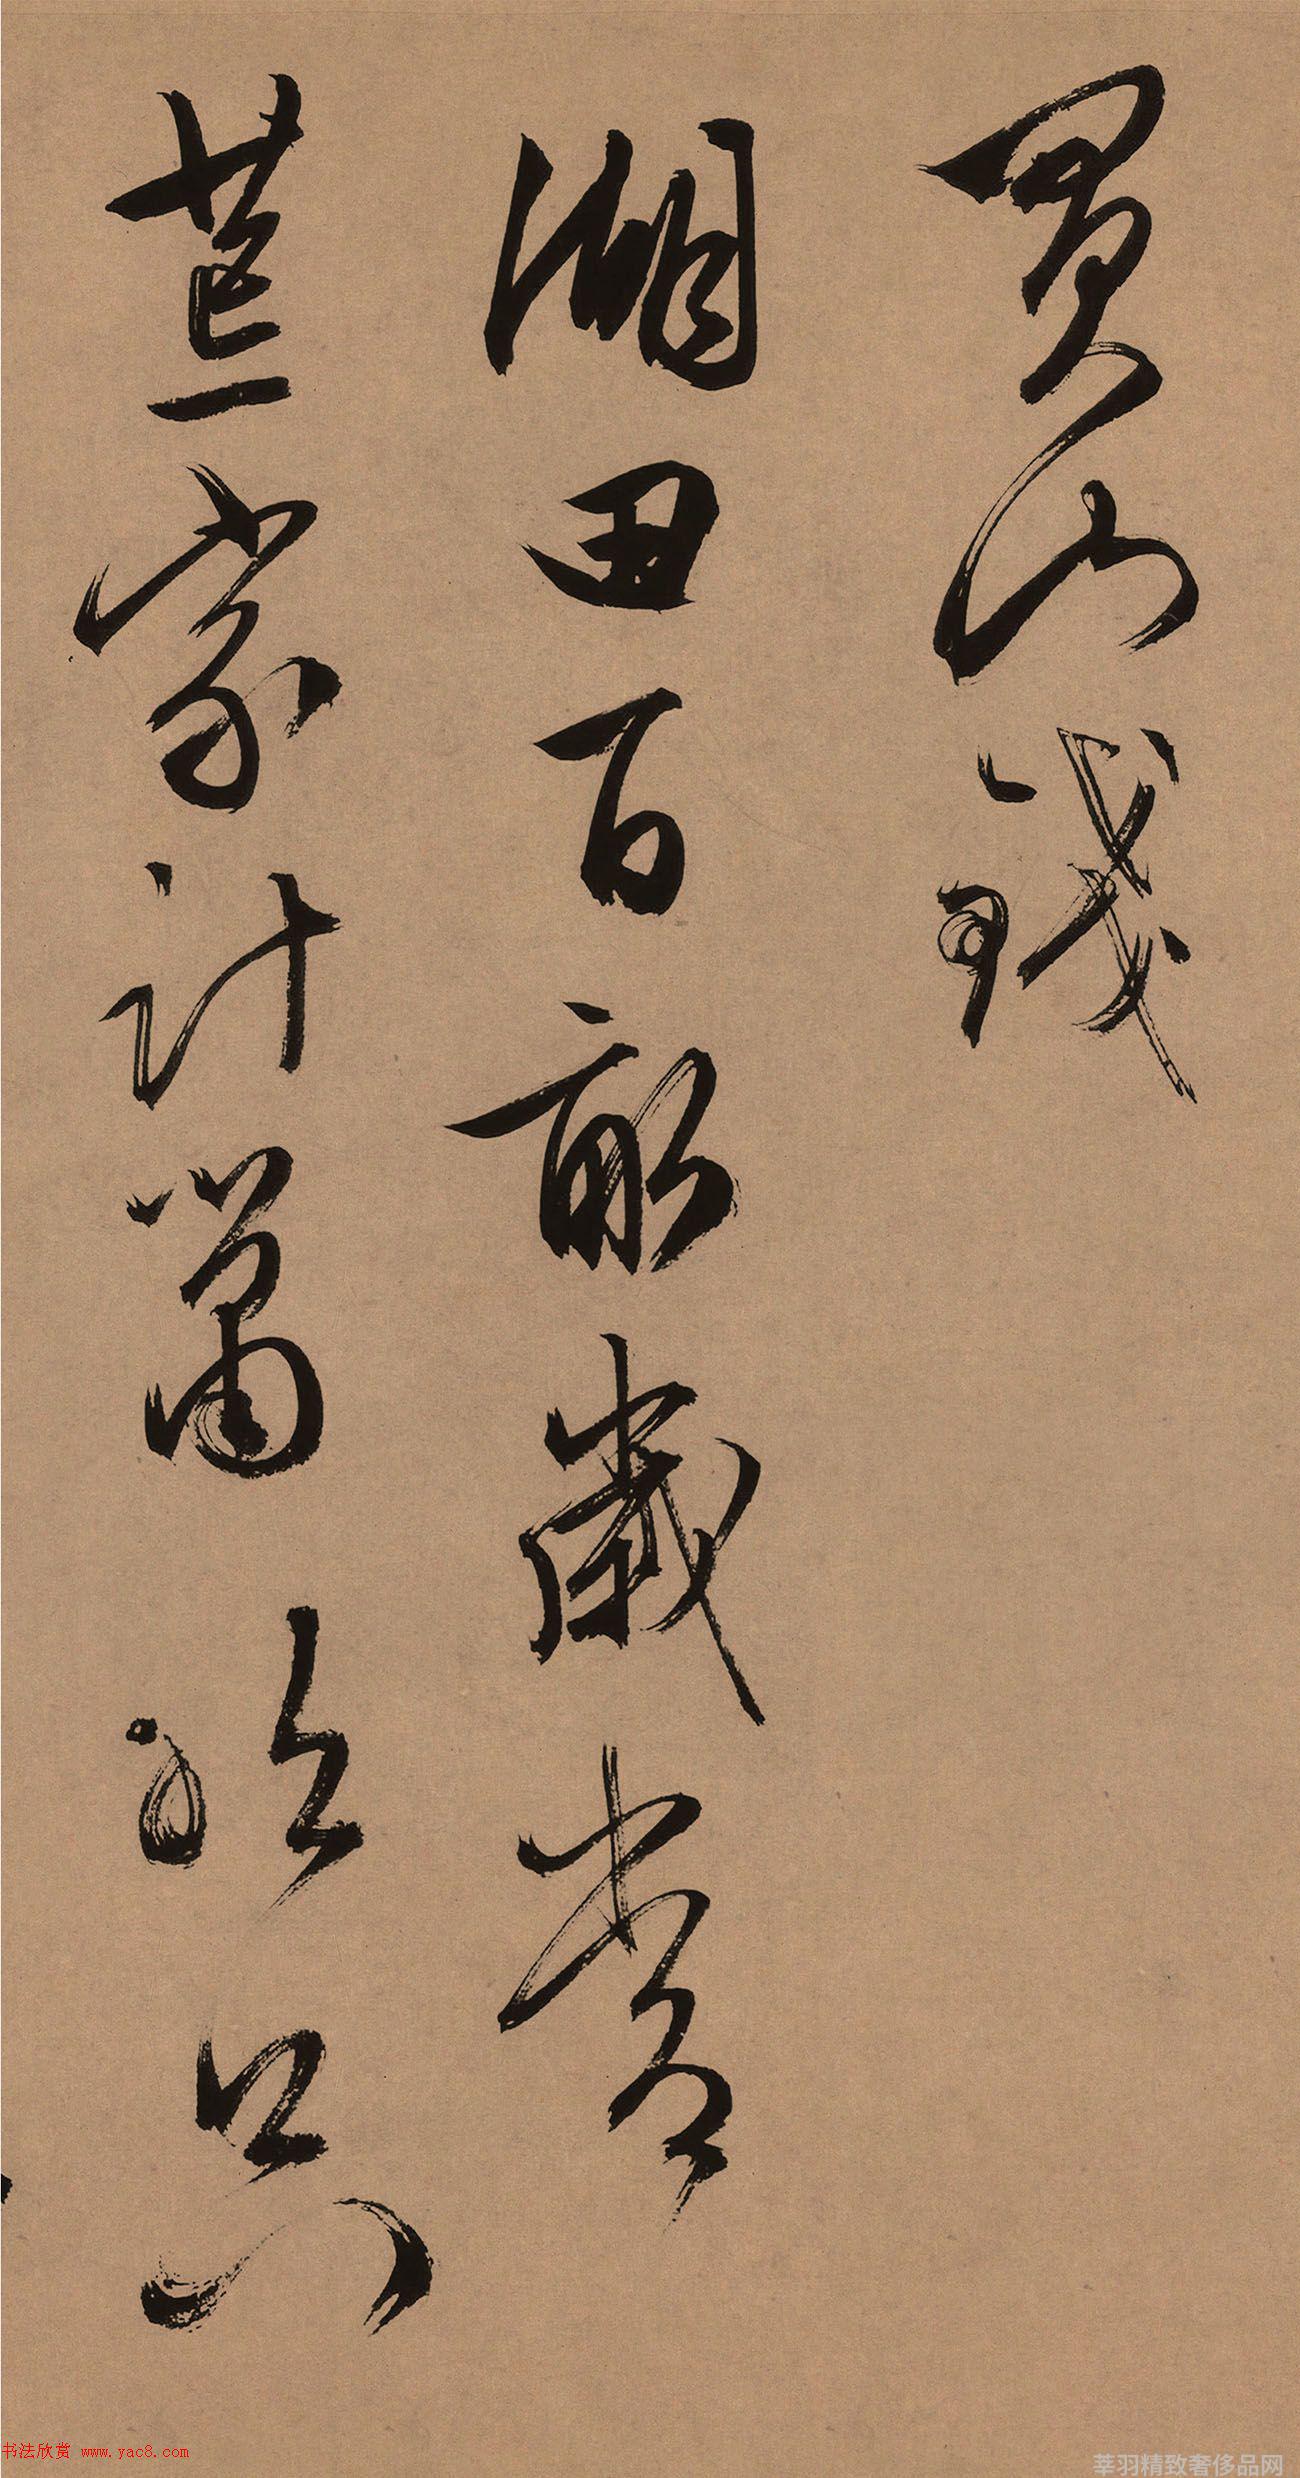 買山錢
湖田百畝歲常
荒家計蕭然只
书法欣赏 www.yac8.com
莘羽精致奢侈品网